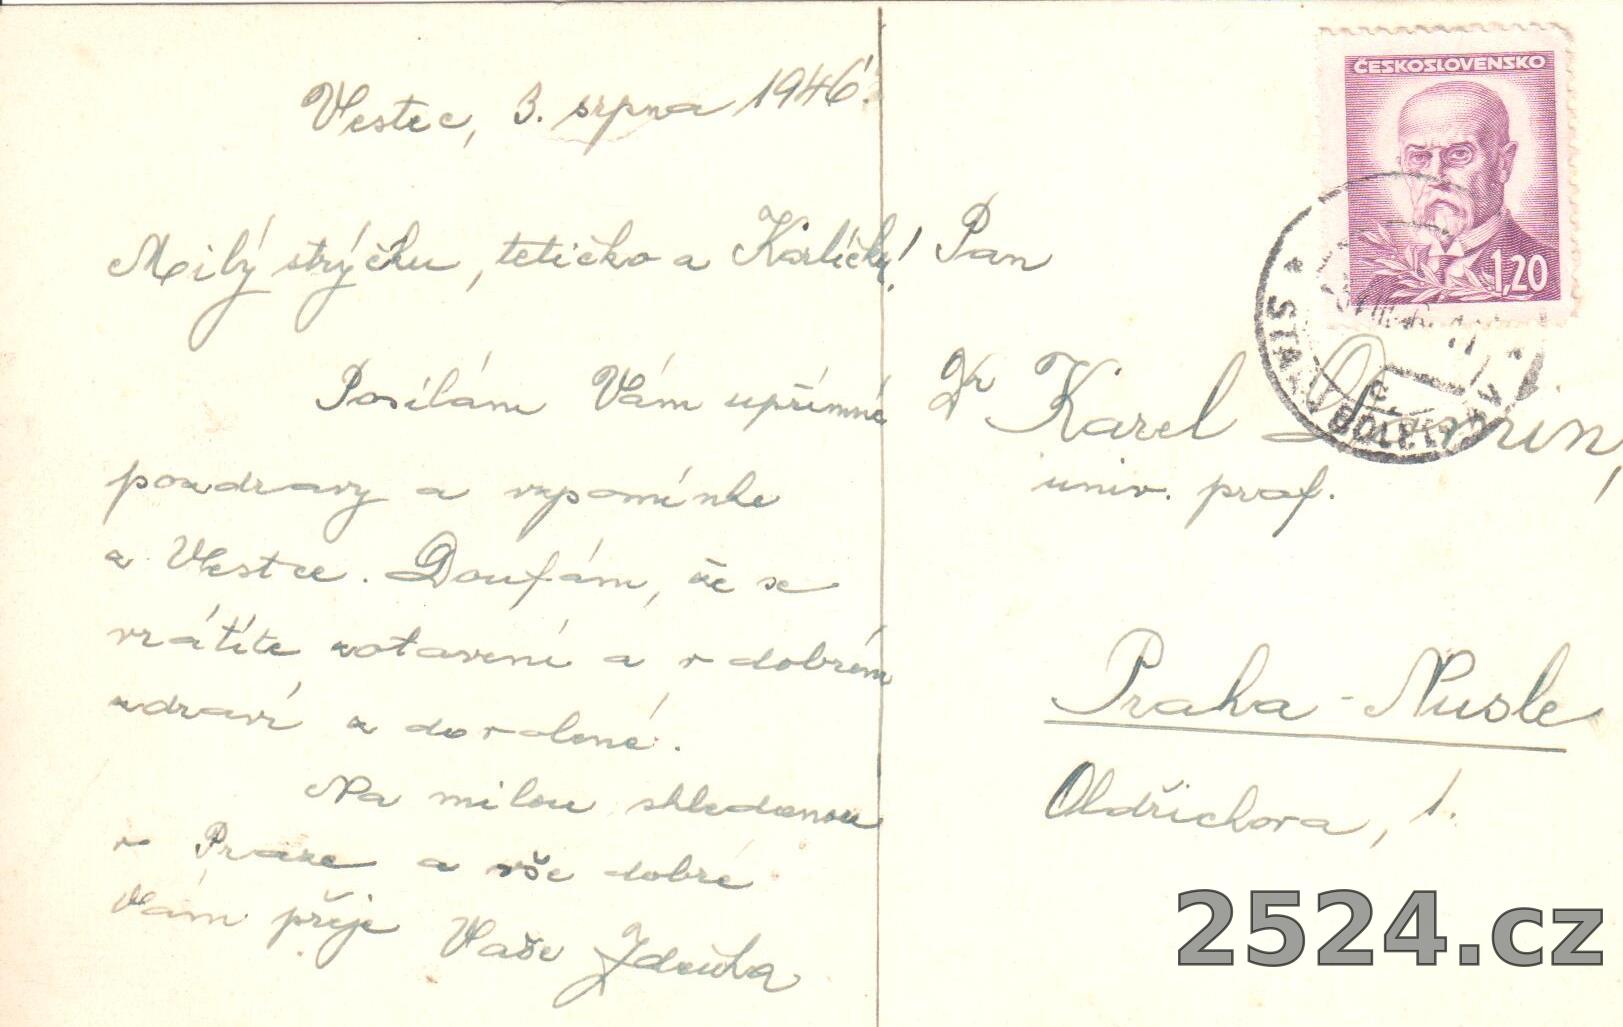 Vestec, 3. srpna 1946.
Milý strýčku, tetičko a Karlíčku!
Posílám Vám upřímné
pozdravy a vzpomínke
z Vestce. Doufám, že se
vrátíte zotavení a v dobrém
zdraví z dovolené.
Na milou shledanou
v Praze a vše dobré
Vám přeje Vaše Zdeňka
ČESKOSLOVENSKO
1,20
STARÁ BOLESLAV
Pan
Dr Karel
univ. prof.
Praha - Nusle
Oldřichova, 1.
2524.cz